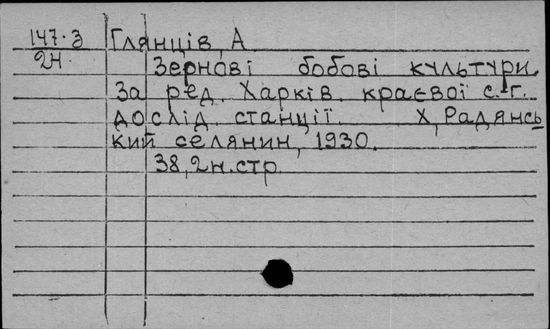 147.3 Глянців, А.
2Н.
Зернові бобові культури.
За ред. Харків. краєвої с.-г.
дослід. станції. Х, Радянсь
кий селянин, 1930.
38, 2н. стр.